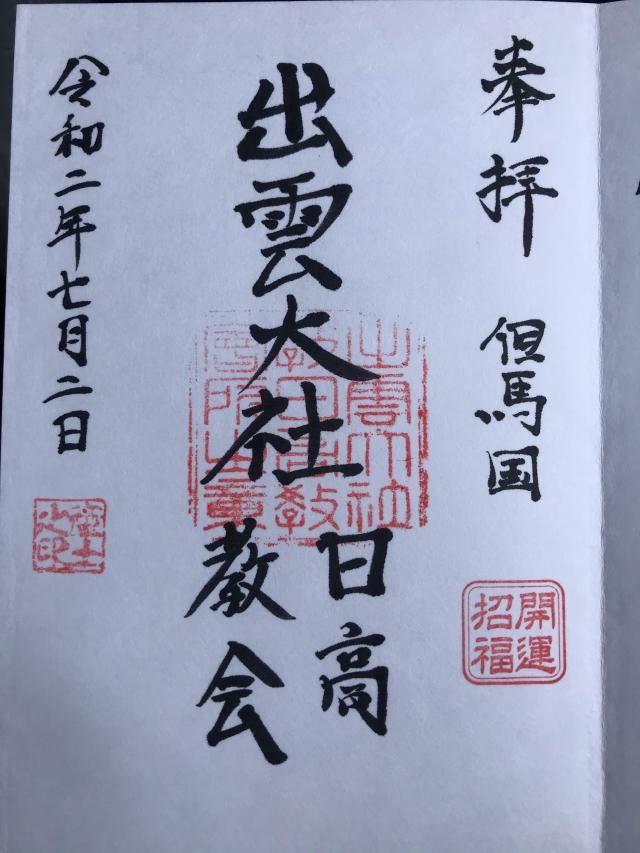 奉拝　但馬国
開運
招福
出雲大社
日高
教会
令和二年七月二日